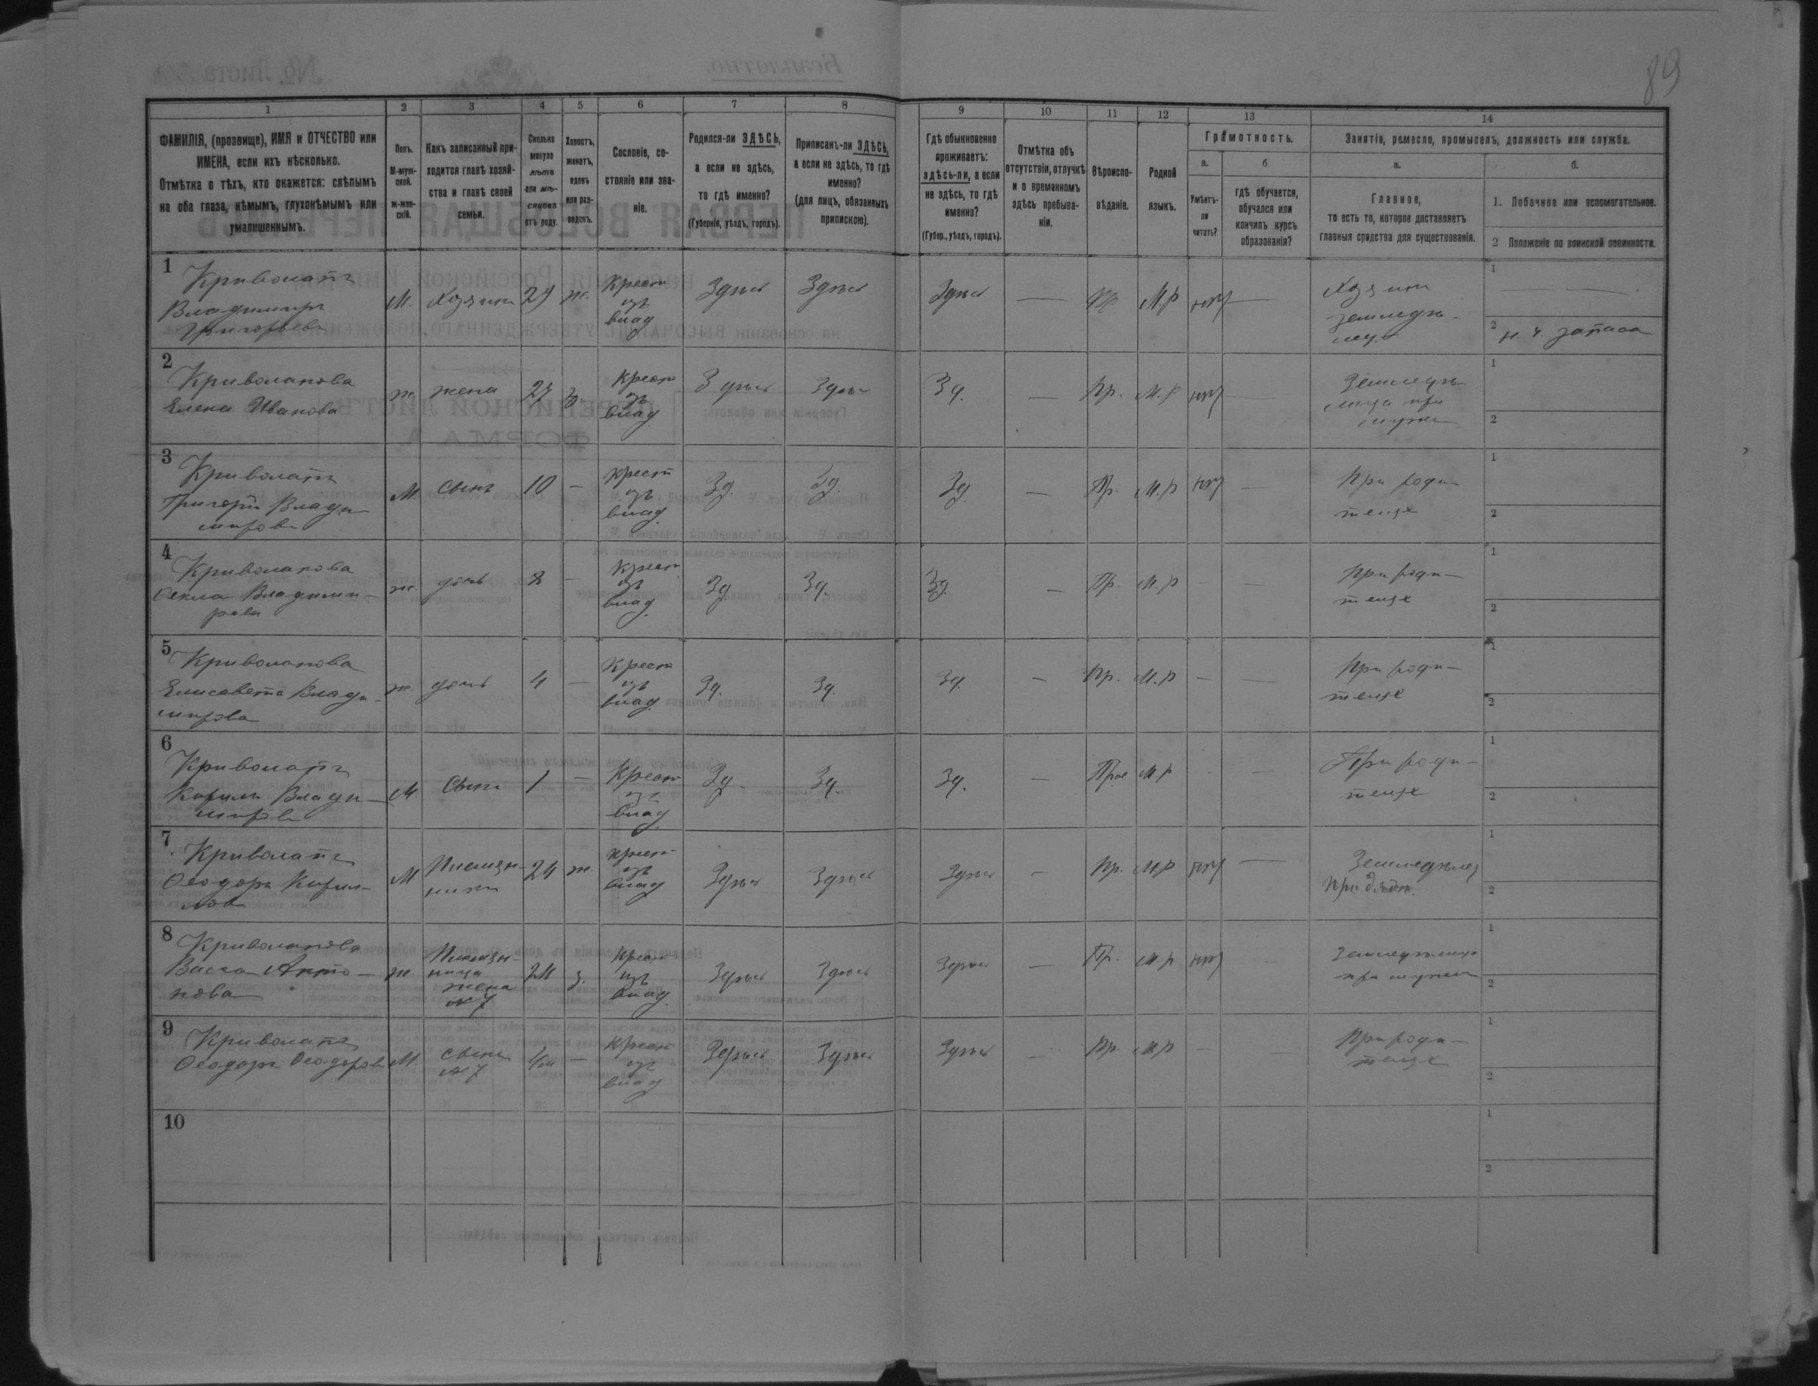 89
1 2 3 4 5 6 7 8 9 10 11 12 13 14
ФАМИЛІЯ, (прозвище), ИМЯ и ОТЧЕСТВО или
ИМЕНА, если ихъ нѣсколько.
Отмѣтка о тѣхъ, кто окажется: слѣпымъ
на оба глаза, нѣмымъ, глухонѣмымъ или
умалишеннымъ.
Полъ.
М-муж-
ской.
ж-жен-
скій.
Какъ записанный при-
ходится главѣ хозяй-
ства и главѣ своей
семьи.
Сколько
минуло
лѣтъ
или мѣ-
сяцевъ
отъ роду.
Холостъ,
женатъ,
вдовъ
или раз-
веденъ.
Сословіе, со-
стояніе или зва-
ніе.
Родился-ли ЗДѢСЬ,
а если не здѣсь,
то гдѣ именно?
(Губернія, уѣздъ, городъ).
Приписанъ-ли ЗДѢСЬ,
а если не здѣсь, то гдѣ
именно?
(для лицъ, обязанныхъ
припискою).
Гдѣ обыкновенно
проживаетъ:
здѣсь-ли, а если
не здѣсь, то гдѣ
именно?
(Губер., уѣздъ, городъ).
Отмѣтка объ
отсутствіи, отлучкѣ
и о временномъ
здѣсь пребыва-
ніи.
Вѣроиспо-
вѣданіе.
Родной
языкъ.
Грамотность.
а.
Умѣетъ-
ли
читать?
б
гдѣ обучается,
обучался или
кончилъ курсъ
образованія?
Занятія, ремесло, промыселъ, должность или служба.
а.
Главное,
то есть то, которое доставляетъ
главныя средства для существованія.
б.
1. Побочное или вспомогательное.
2 Положеніе по воинской повинности.
1
Криволапъ
Владиміръ
Григорьевъ
М. Хозяинъ 29 ж.
Крест
изъ
влад
Здѣсь Здѣсь Здѣсь — Пр М.Р нѣтъ —
Хозяинъ
земледѣ-
лецъ
1 — —
2 н. ч запаса
2
Криволапова
Елена Иванова
ж. жена 27 з.
Крест
изъ
влад
Здѣсь Здѣсь Зд. — Пр. М.Р нѣтъ
Земледѣ-
лица при
мужѣ
1
2
3
Криволапъ
Григорій Влади-
міровъ
М сынъ 10 —
Крест
изъ
влад.
Зд. Зд. Зд. — Пр. М.Р нѣтъ —
При роди-
теляхъ
1
2
4
Криволапова
Ѳекла Владимі-
рова
ж. дочь 8 —
Крест
изъ
влад.
Зд Зд. Зд. — Пр. М.Р - -
При роди-
теляхъ
1
2
5
Криволапова
Елисавета Влади-
мірова
ж. дочь 4 —
Крест
изъ
влад
Зд. Зд. Зд. — Пр. М.Р - —
При роди-
теляхъ
1
2
6
Криволапъ
Кирилъ Влади-
міровъ
М. Сынъ 1 —
Крест
изъ
влад
Зд. Зд. Зд. — Прав М.Р - —
При роди-
теляхъ
1
2
7
Криволапъ
Ѳеодоръ Кирил-
ловъ
М Племян-
никъ 24 ж
крест
изъ
влад
Здѣсь Здѣсь Здѣсь — Пр. М.Р нѣтъ —
Земледѣлецъ
при дядѣ.
1
2
8
Криволапова
Васса Анто-
нова
ж. Племян-
ница
жена
№ 7
24 з.
Крест
изъ
влад.
Здѣсь Здѣсь Здѣсь — Пр. М.Р нѣтъ
Земледѣлица
при мужѣ
1
2
9
Криволапъ
Ѳеодоръ Ѳеодоровъ
М сынъ
№ 7
—
Крест
изъ
влад
Здѣсь Здѣсь Здѣсь — Пр. М.Р - -
При роди-
теляхъ
1
2
10
1
2